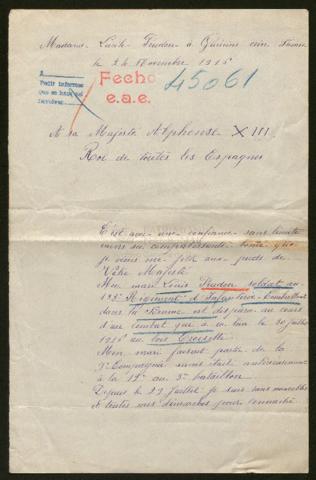 Madame Louis Pruden à
le 24 Novembre 1916
A
Pedir informes
que se hace sel
Fecho
e.a.e.
45061
A sa Majesté Alphonse XIII
Roi de toutes les Espagnes
C'est avec une confiance sans limite
envers sa compatissante bonté que
je viens me jeter aux pieds de
Votre Majesté
Mon mari Louis Pruden soldat au
Régiment d'Infanterie
dans la Somme est disparu au cours
d'un combat qui a eu lieu le 30 Juillet
1916 au bois
Mon mari faisait partie de la
Compagnie mais était antérieurement
à la 12e du 3e bataillon
Depuis le 29 Juillet je suis sans nouvelles
& toutes mes démarches pour connaître